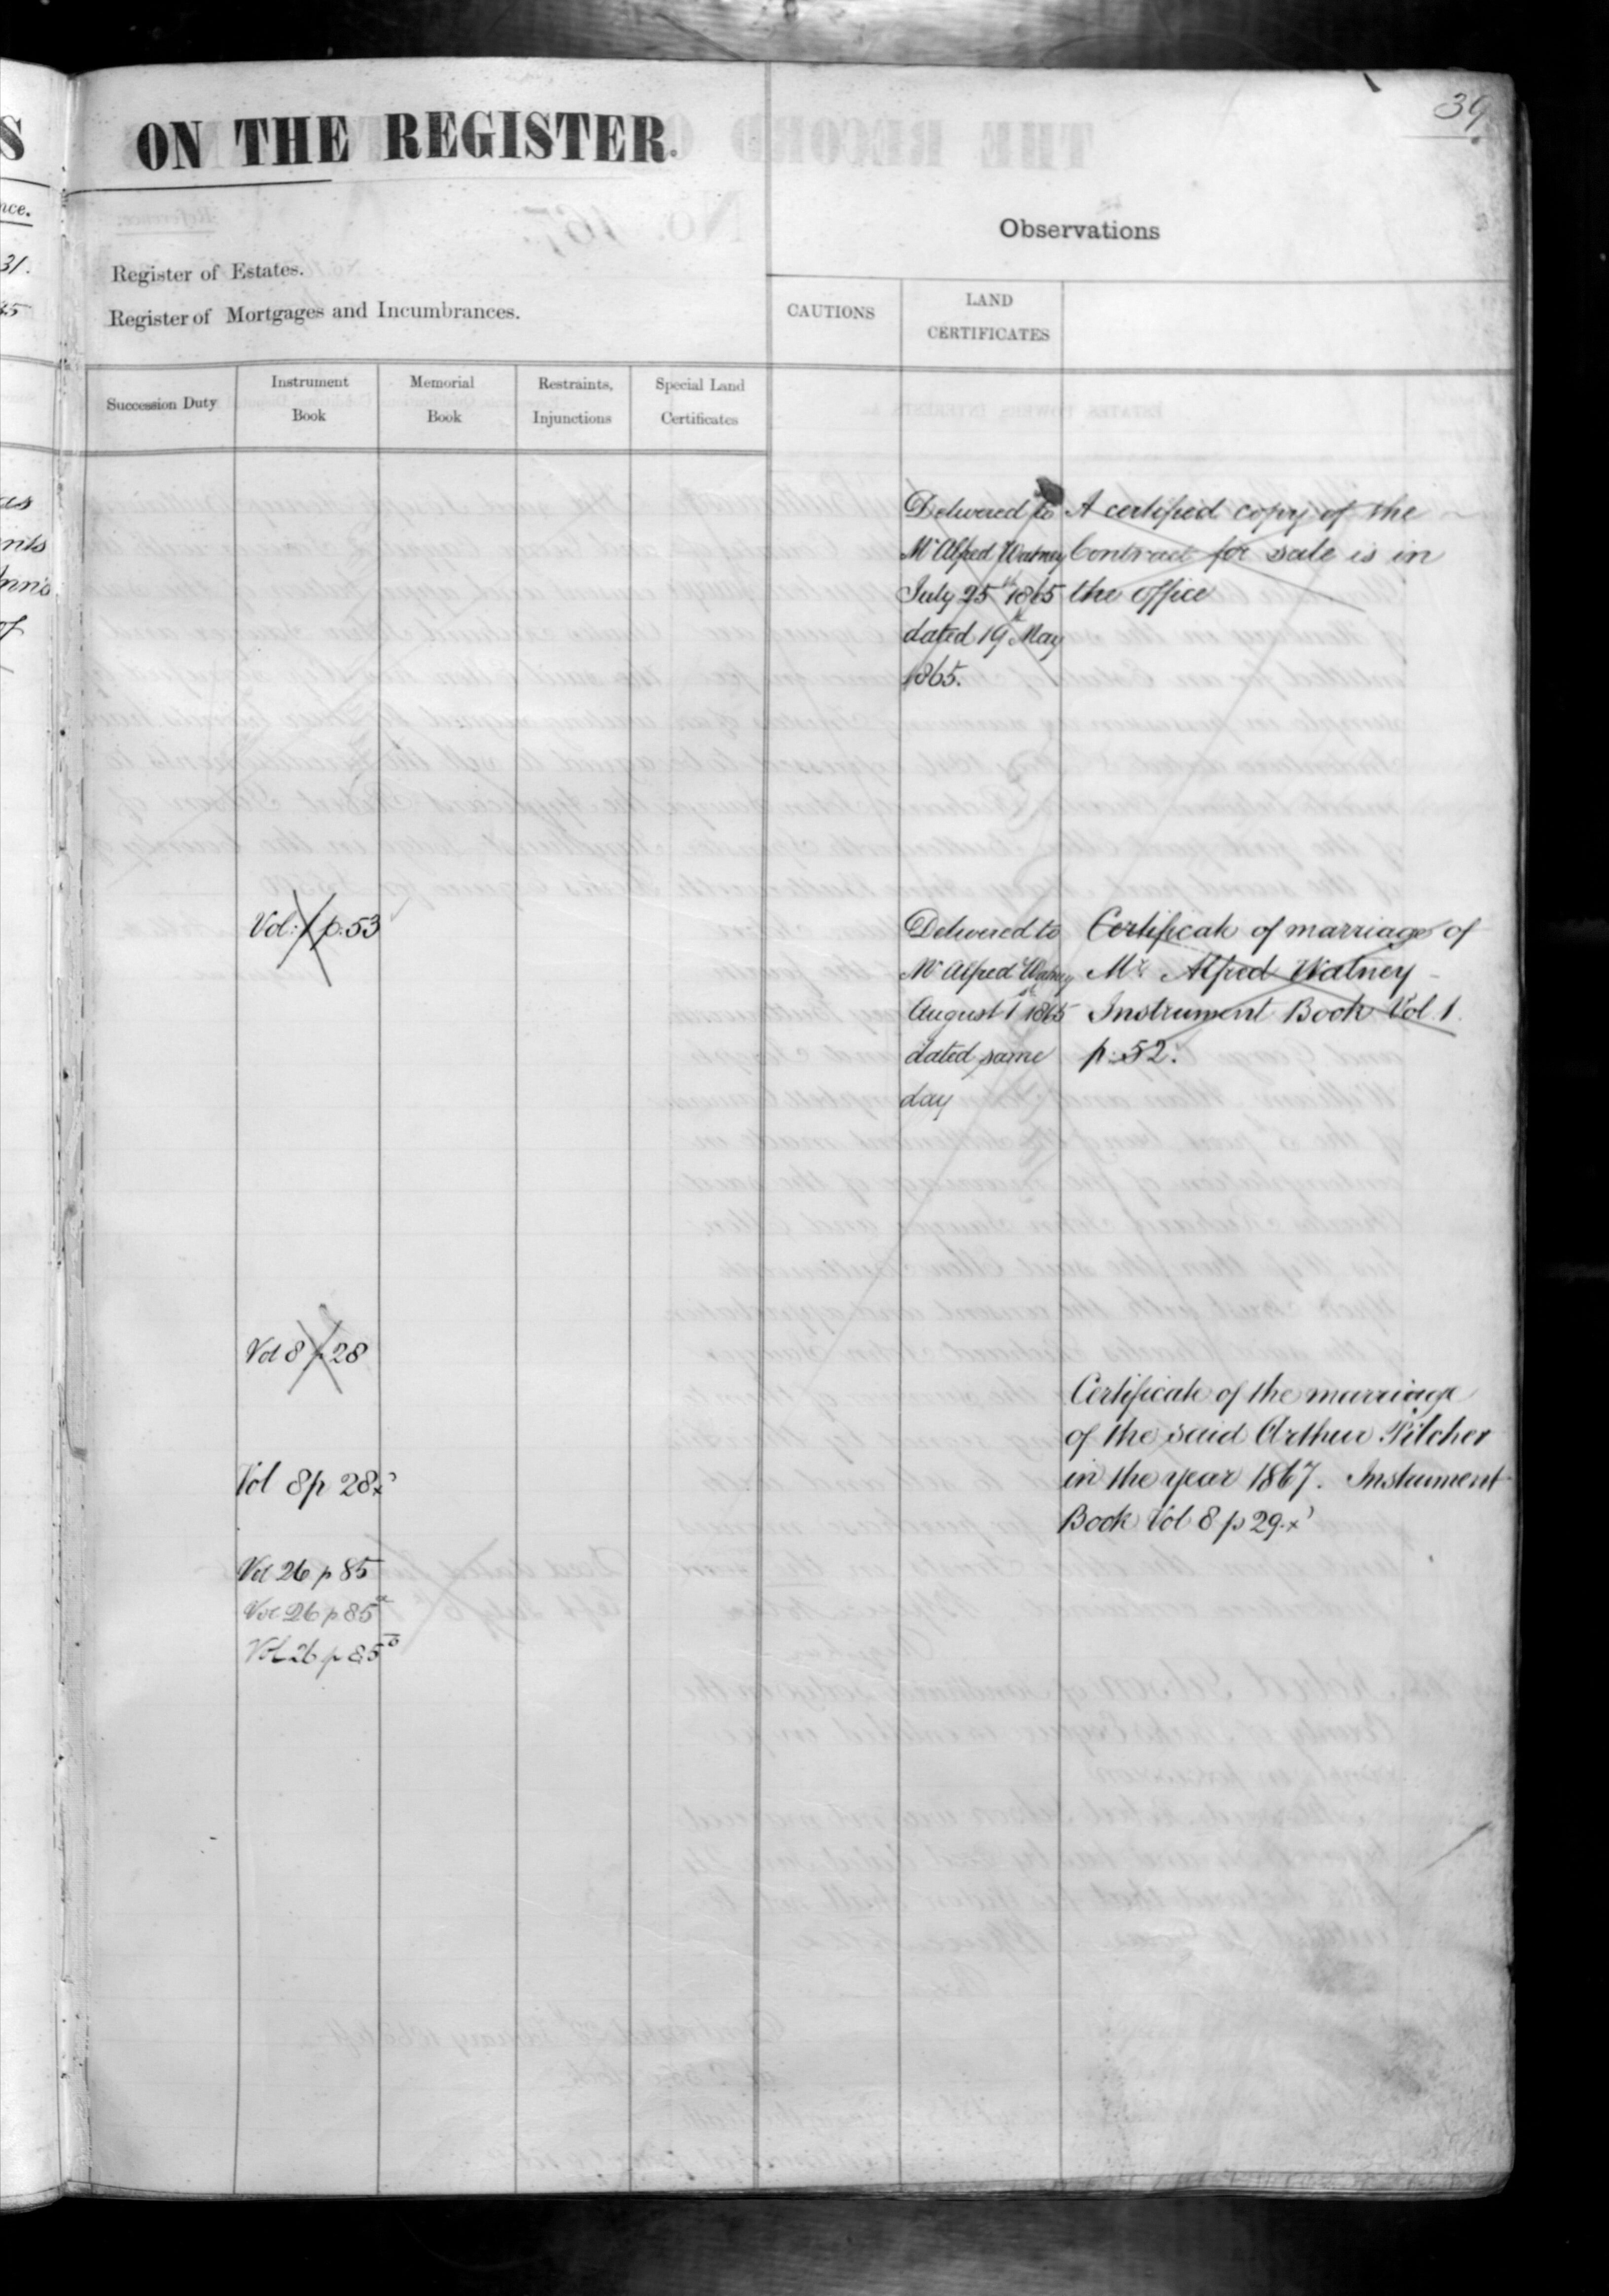 39
ON THE REGISTER.
Observations
Register of Estates.
Register of Mortgages and Incumbrances.
CAUTIONS
LAND
CERTIFICATES
Succession Duty
Instrument
Book
Memorial
Book
Restraints,
Injunctions
Special Land
Certificates
Delivered to
Mr Alfred Watney
July 25th 1865
dated 19th May
1865.
A certified copy of the
Contract for sale is in
the office
Vol: 1 p. 53
Delivered to
Mr Alfred Watney
August 1st 1865
dated same
day
Certificate of marriage of
Mr Alfred Watney
Instrument Book Vol 1.
p. 52.
Vol 8 p 28
Certificate of the marriage
of the said Arthur Pilcher
in the year 1867. Instrument
Book Vol 8 p 29.x
Vol 8 p 28x
Vol 26 p 85
Vol 26 p 85a
Vol 26 p 85b